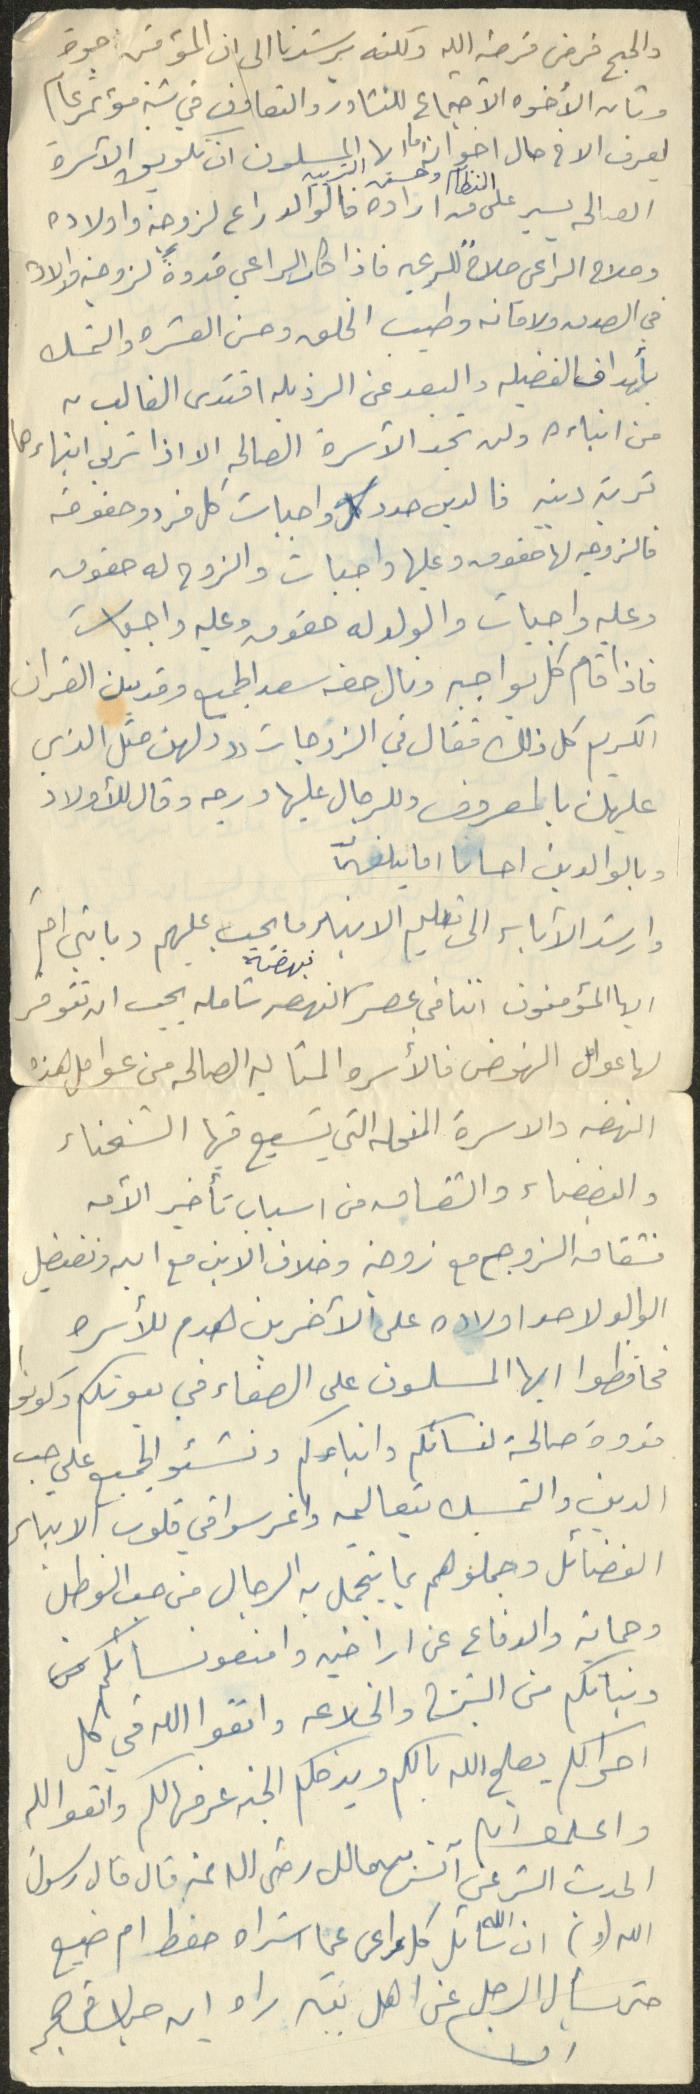 والحج فرض فرضه الله ولكنه يرشدنا الى ان المؤمنين اخوة
وشان الأخوه الاجتماع للتشاور والتعاون في شبه مؤتمر عام
ليعرف الاخ حال اخوانه ايها المسلمون ان تكوين الأسرة
النظام وحسن التربيه
الصالحه يسير على من اراده فالوالد راع لزوجته واولاده
وصلاح الراعى صلاحٌ للرعيه فاذا كان الراعي قدوةً لزوجته واولاده
في الصدق والامانه وطيب الخلق وحسن العشره والتمسك
بأهداف الفضيله والبعد عن الرذيله اقتدى الغالب به
من ابناءه ولن تجد الأسرة الصالحه الا اذا تربى ابناءها
تربية دينيه فالدين حدد واجبات كل فرد وحقوقه
فالزوجه لها حقوق وعليها واجبات والزوج له حقوق
وعليه واجبات والولد له حقوق وعليه واجبات
فاذا قام كل بواجبه ونال حقه سعد الجميع وقد بين القران
الكريم كل ذلك فقال في الزوجات (( ولهن مثل الذي
عليهن بالمعروف وللرجال عليها درجه وقال للأولاد
وبالوالدين احسانا اما يبلغن
وارشد الآباء الى تعليم الابناء ما يجب عليهم ويابني اقم
ايها المؤمنون اننا في عصر نهضة شامله يجب ان تتوفر
لها عوامل النهوض فالأسره المثاليه الصالحه من عوامل هذه
النهضه والاسرة المنحله التي تشيع فيها الشحناء
والبغضاء والشقاق من اسباب تأخير الأمه
فشقاق الزوج مع زوجته وخلاف الابن مع ابيه وتفضيل
الوالد لاحد اولاده على الآخرين هدم للأسره
فحافظوا ايها المسلمون على الصفاء في بيوتكم وكونوا
قدوة صالحة لنسائكم وابناءكم ونشئو الجميع على حب
الدين والتمسك بتعاليمه واغرسوا في قلوب الابناء
الفضائل وجملوهم بما يتجمل به الرجال من حب الوطن
وحمايته والدفاع عن اراضيه وامنعو نسائكم
وبناتكم من التبرج والخلاعه واتقوا الله في كل
احوالكم يصلح الله بالكم ويدخلكم الجنه عرفها لكم واتقوا الله
واعلموا انكم
الحديث الشريف عن أنس بن مالك رضى الله عنه قال قال رسول
الله (ص) ان الله سائل كل راعى عما استراه حفظ ام ضيع
حتى يسأل الرجل عن اهل بيته رواه ابن حبان في صحيحه